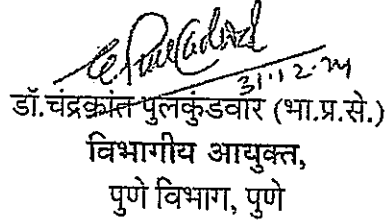 31.12.24
डॉ.चंद्रक्रांत पुलकुंडवार (भा.प्र.से.)
विभागीय आयुक्त,
पुणे विभाग, पुणे